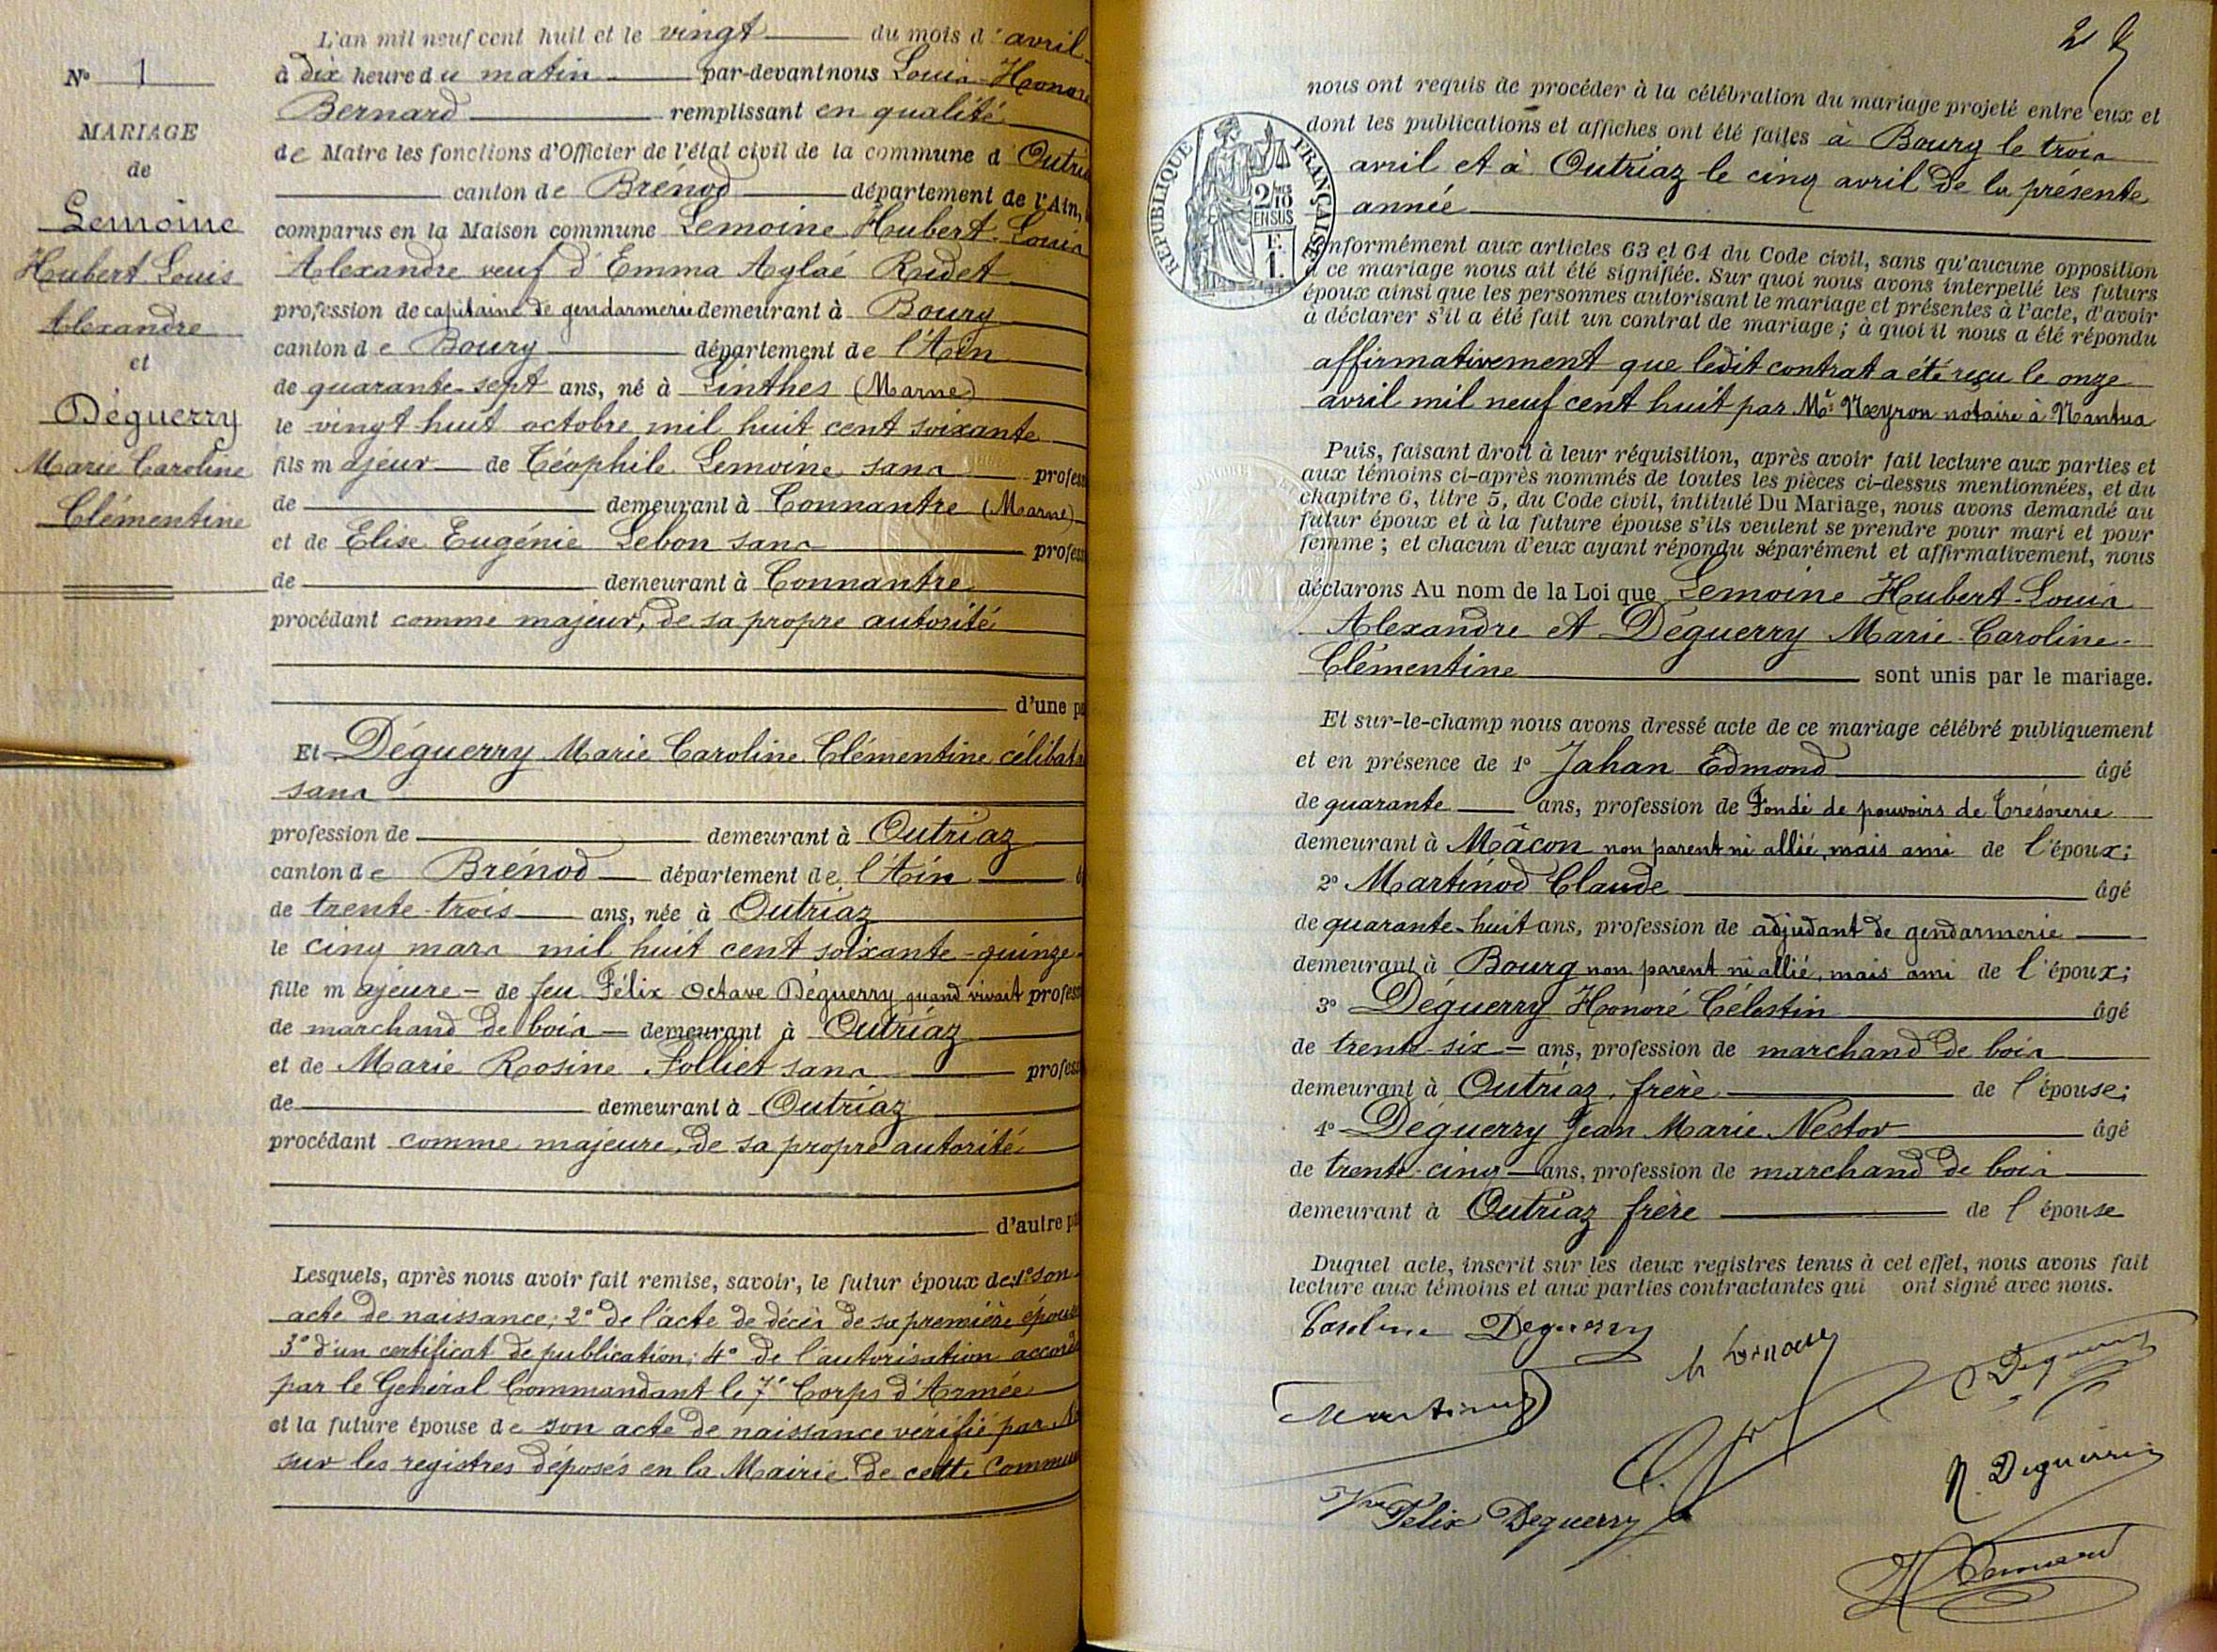 L'an mil neuf cent huit et le vingt du mois d'avril
à dix heure du matin par-devant nous Louis-Honoré
Bernard remplissant en qualité
de Maire les fonctions d'Officier de l'état civil de la commune d'Outria
canton de Brénod département de l'Ain,
comparus en la Maison commune Lemoine Hubert-Louis
Alexandre veuf d'Emma Aglaé Rudet
profession de capitaine de gendarmerie demeurant à Bourg
canton de Bourg département de l'Ain
de quarante-sept ans, né à Linthes (Marne)
le vingt huit octobre mil huit cent soixante
fils majeur de Téophile Lemoine sans profess
de demeurant à Connantre (Marne)
et de Elise Eugénie Lebon sans profess
de demeurant à Connantre
procédant comme majeur, de sa propre autorité
d'une pa
Et Déguerry Marie Caroline Clémentine célibata
sans
profession de demeurant à Outriaz
canton de Brénod département de l'Ain
de trente-trois ans, née à Outriaz
le cinq mars mil huit cent soixante-quinze
fille majeure de feu Félix Octave Déguerry quand vivait profess
de marchand de bois demeurant à Outriaz
et de Marie Rosine Folliet sans profess
de demeurant à Outriaz
procédant comme majeure, de sa propre autorité
d'autre pa
Lesquels, après nous avoir fait remise, savoir, le futur époux de: 1° son
acte de naissance; 2° de l'acte de décès de sa première épouse
3° d'un certificat de publication; 4° de l'autorisation accordé
par le Général Commandant le 7e Corps d'Armée
et la future épouse de son acte de naissance vérifié par N
sur les registres déposés en la Mairie de cette Commun
N° 1
MARIAGE
de
Lemoine
Hubert Louis
Alexandre
et
Déguerry
Marie Caroline
Clémentine
2
nous ont requis de procéder à la célébration du mariage projeté entre eux et
dont les publications et affiches ont été faites à Bourg le trois
avril et à Outriaz le cinq avril de la présente
année
RÉPUBLIQUE FRANÇAISE
2/10
EN SUS
1F.
nformément aux articles 63 et 64 du Code civil, sans qu'aucune opposition
à ce mariage nous ait été signifiée. Sur quoi nous avons interpellé les futurs
époux ainsi que les personnes autorisant le mariage et présentes à l'acte, d'avoir
à déclarer s'il a été fait un contrat de mariage; à quoi il nous a été répondu
affirmativement que ledit contrat a été reçu le onze
avril mil neuf cent huit par Me Neyron notaire à Nantua
Puis, faisant droit à leur réquisition, après avoir fait lecture aux parties et
aux témoins ci-après nommés de toutes les pièces ci-dessus mentionnées, et du
chapitre 6, titre 5, du Code civil, intitulé Du Mariage, nous avons demandé au
futur époux et à la future épouse s'ils veulent se prendre pour mari et pour
femme; et chacun d'eux ayant répondu séparément et affirmativement, nous
déclarons Au nom de la Loi que Lemoine Hubert-Louis
Alexandre et Déguerry Marie-Caroline-
Clémentine sont unis par le mariage.
Et sur-le-champ nous avons dressé acte de ce mariage célébré publiquement
et en présence de 1° Jahan Edmond âgé
de quarante ans, profession de Fondé de pouvoirs de Trésorerie
demeurant à Mâcon non parent ni allié, mais ami de l'époux;
2° Martinod Claude âgé
de quarante-huit ans, profession de adjudant de gendarmerie
demeurant à Bourg non parent ni allié, mais ami de l'époux;
3° Déguerry Honoré Célestin âgé
de trente-six ans, profession de marchand de bois
demeurant à Outriaz, frère de l'épouse;
4° Déguerry Jean Marie Nestor âgé
de trente-cinq ans, profession de marchand de bois
demeurant à Outriaz frère de l'épouse
Duquel acte, inscrit sur les deux registres tenus à cet effet, nous avons fait
lecture aux témoins et aux parties contractantes qui ont signé avec nous.
Caroline Deguerry
C Deguerry
Martinod
N. Deguerry
Vve Félix Deguerry
H Bernard